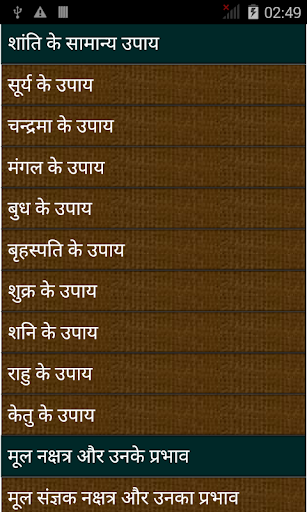 02:49
शांति के सामान्य उपाय
सूर्य के उपाय
चन्द्रमा के उपाय
मंगल के उपाय
बुध के उपाय
बृहस्पति के उपाय
शुक्र के उपाय
शनि के उपाय
राहु के उपाय
केतु के उपाय
मूल नक्षत्र और उनके प्रभाव
मूल संज्ञक नक्षत्र और उनका प्रभाव